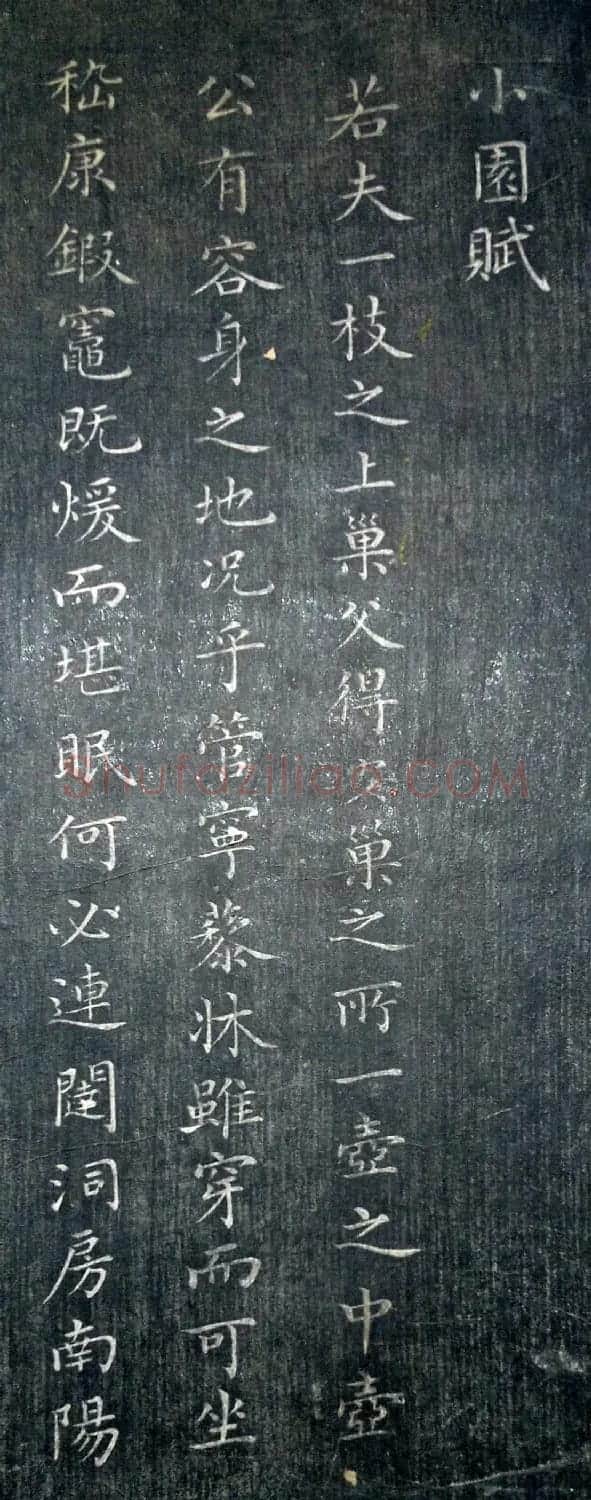 小園賦
若夫一枝之上巢父得安巢之所一壺之中壺
公有容身之地況乎管寧藜牀雖穿而可坐
嵇康鍛竈既煖而堪眠何必連闥洞房南陽
Shufaziliao.COM